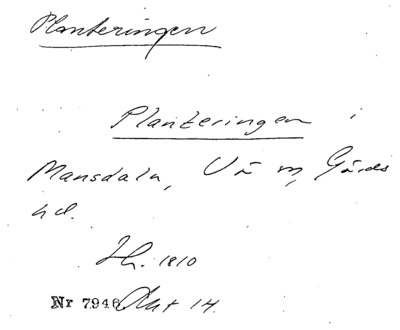 Planteringen
Planteringen i
Mansdala, Vä sn, Gärds
hd.
Hr. 1810
Nr 7946 Akt 14.